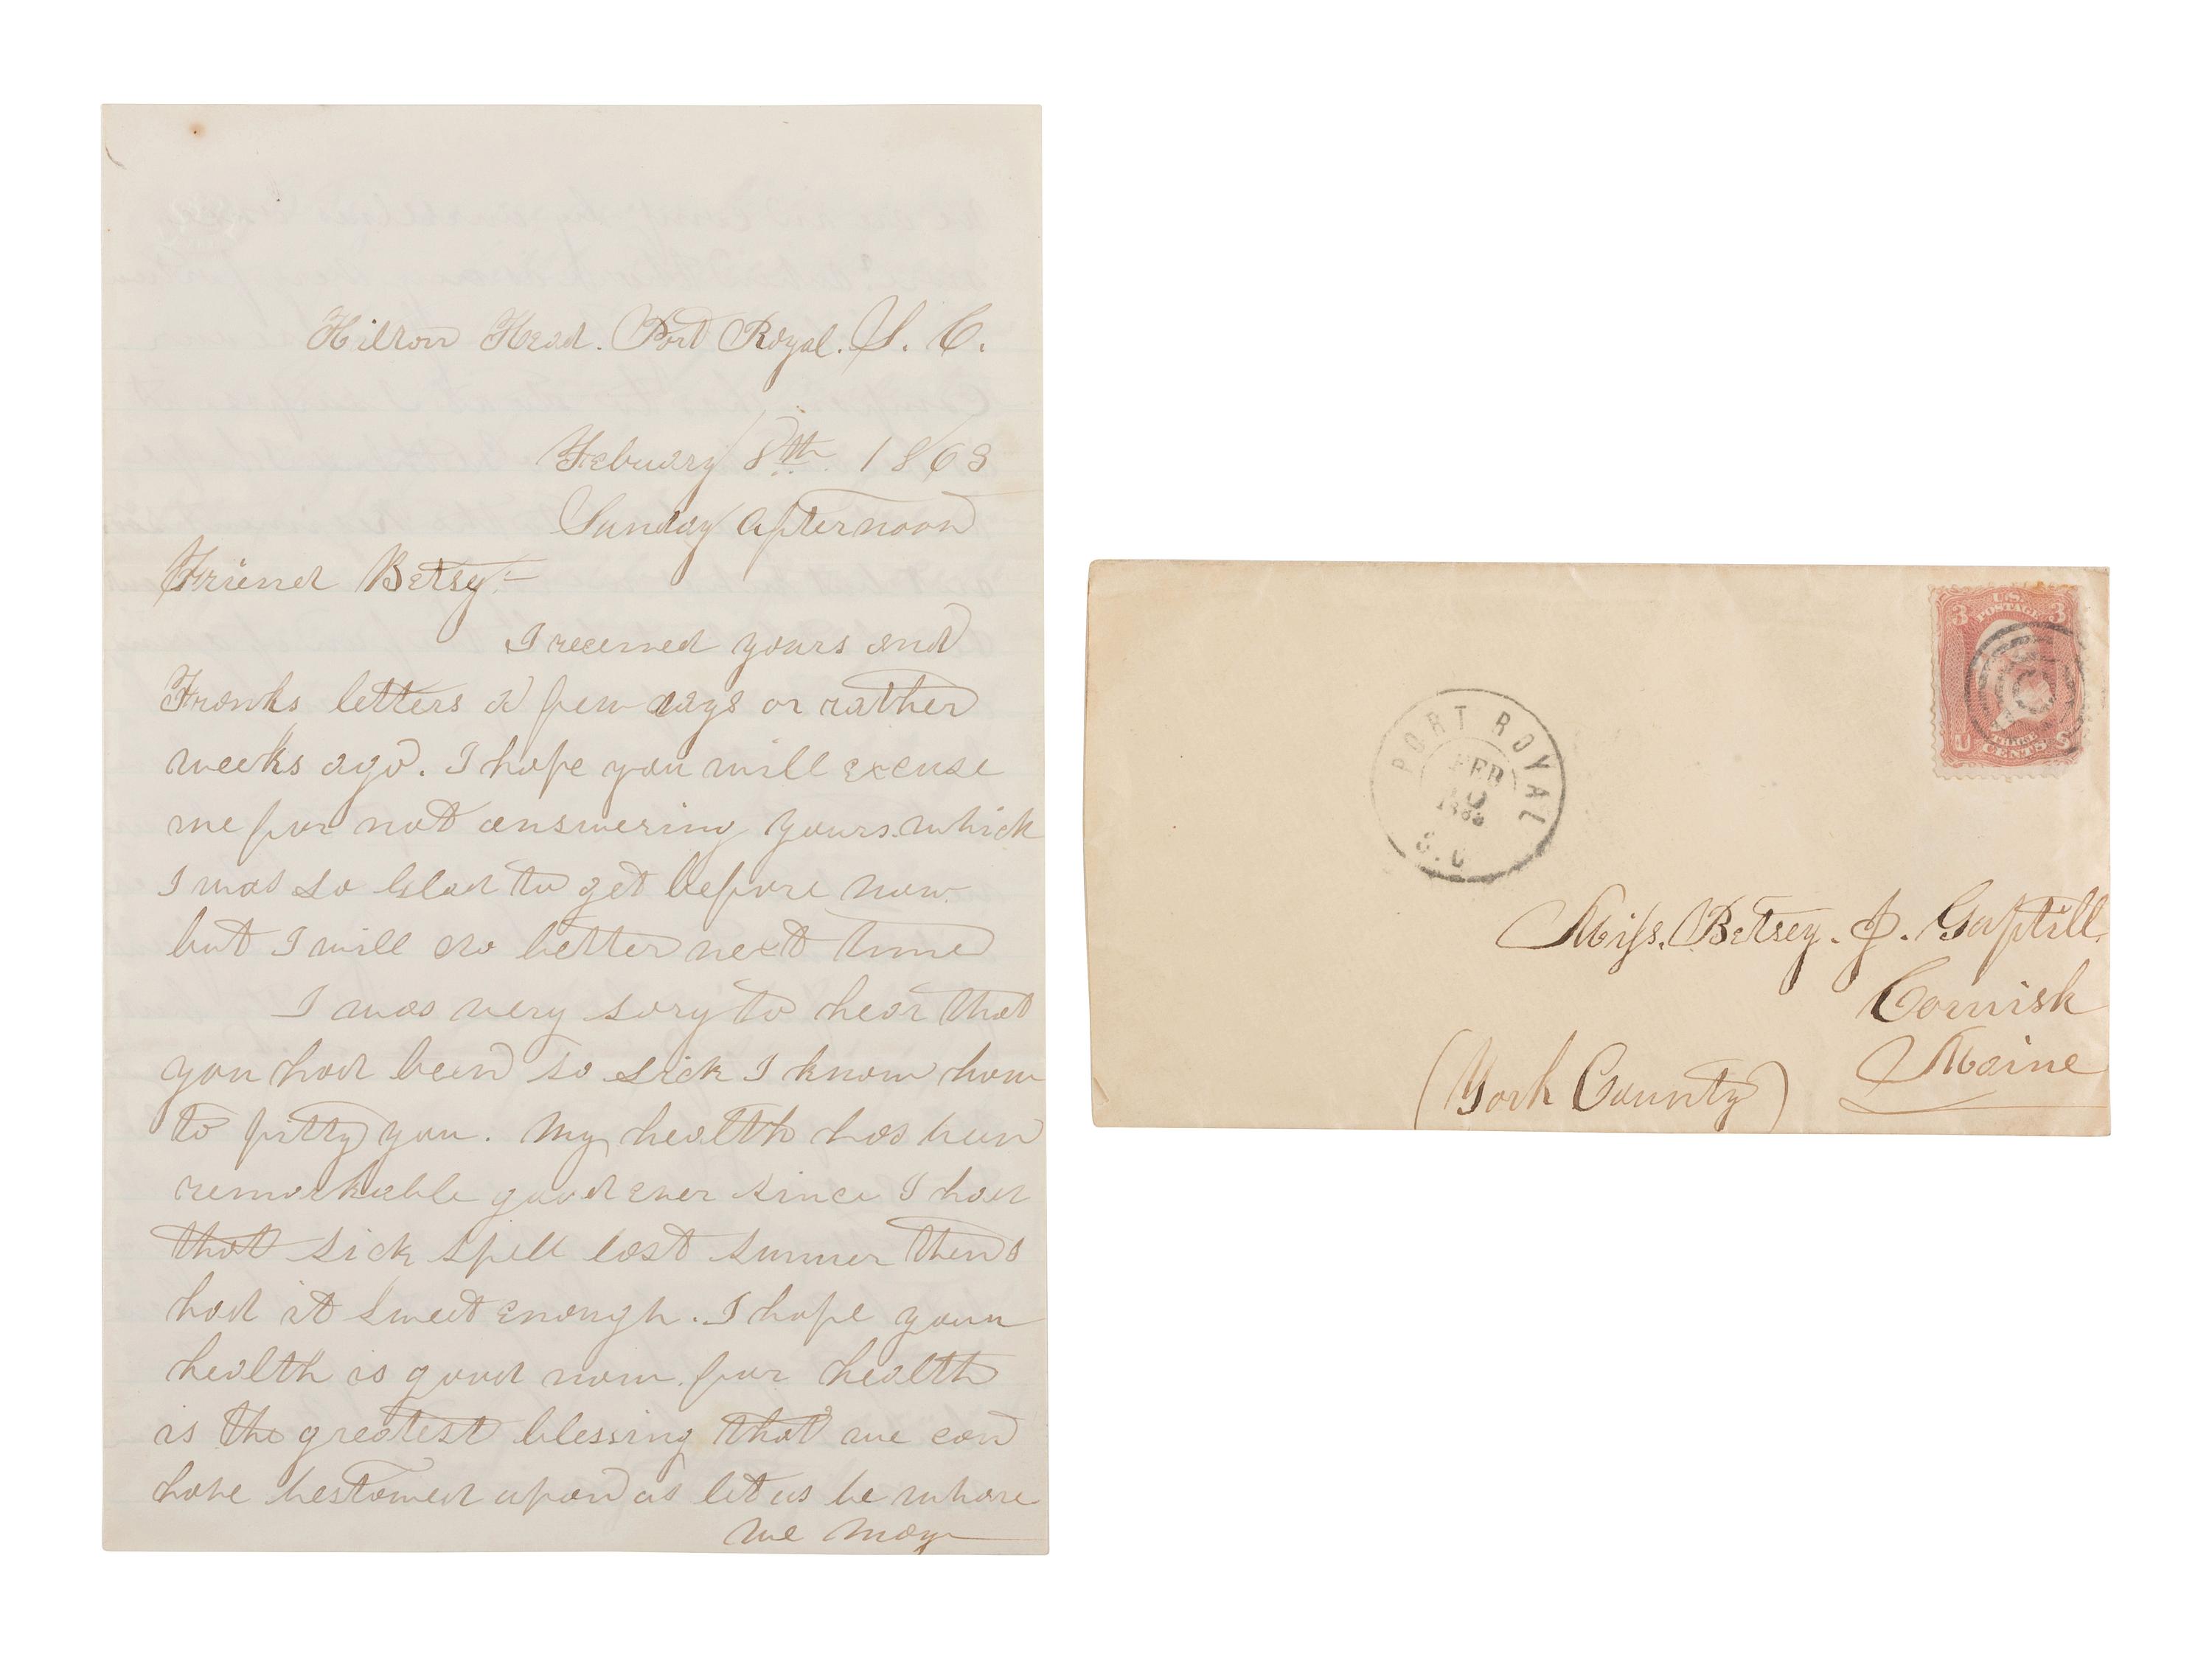 Hilton Head. Port Royal. S. C.
Febuary 8th 1863
Sunday afternoon
Friend Betsy:-
I received yours and
Franks letters a few days or rather
weeks ago. I hope you will excuse
me for not answering yours. which
I was so Glad to get before now.
but I will do better next time
I was very sory to hear that
you had been so sick I know how
to pitty you. My health has been
remarkable good ever since I had
that sick spell last summer then I
had it sweet enough. I hope your
health is good now. for health
is the greatest blessing that we can
have bestowed upon us let us be whare
we may
PORT ROYAL
FEB
9
1863
S.C
U.S.
POSTAGE
3 3
THREE
CENTS
U S
Miss. Betsey. J. Guptill.
Cornish
Maine
(York County)